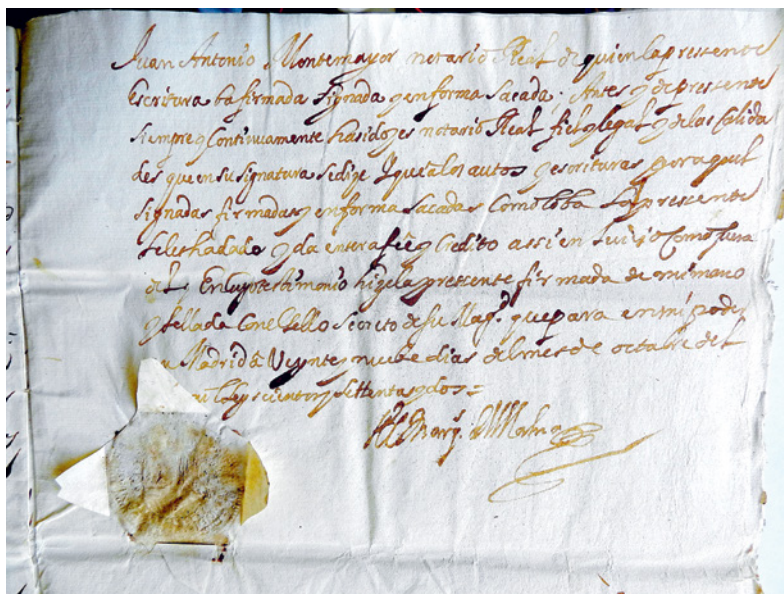 Juan Antonio Montemayor notario Real de quien la presente
Escritura ba firmada signada y en forma sacada; Antes y de presente
siempre y Continuamente ha sido y es notario Real fiel y legal y de las Calida
des que en su signatura se dize Y que a los autos y escrituras por aquel
signadas firmadas y en forma sacadas Como lo ba La presente
se les ha dado y da entera feê y Credito assi en Juicio Como fuera
del; En cuyo testimonio hize la presente firmada de mi mano
y sellada Con el sello secreto de su Mag.d que para en mi poder
Madrid â Veynte y nuebe dias del mes de octubre del
seyscientos y settenta y dos =